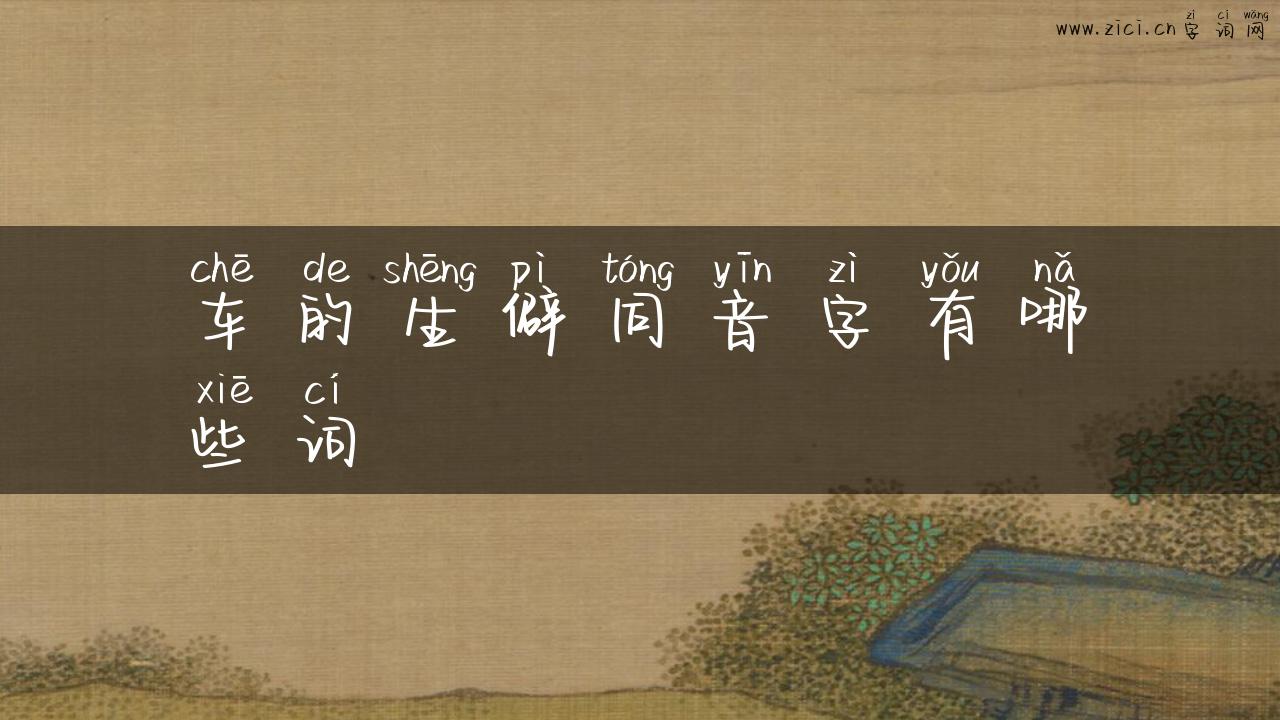 www.zici.cn字词网
zì cí wǎng
chē de shēng pì tóng yīn zì yǒu nǎ
车的生僻同音字有哪
xiē cí
些词